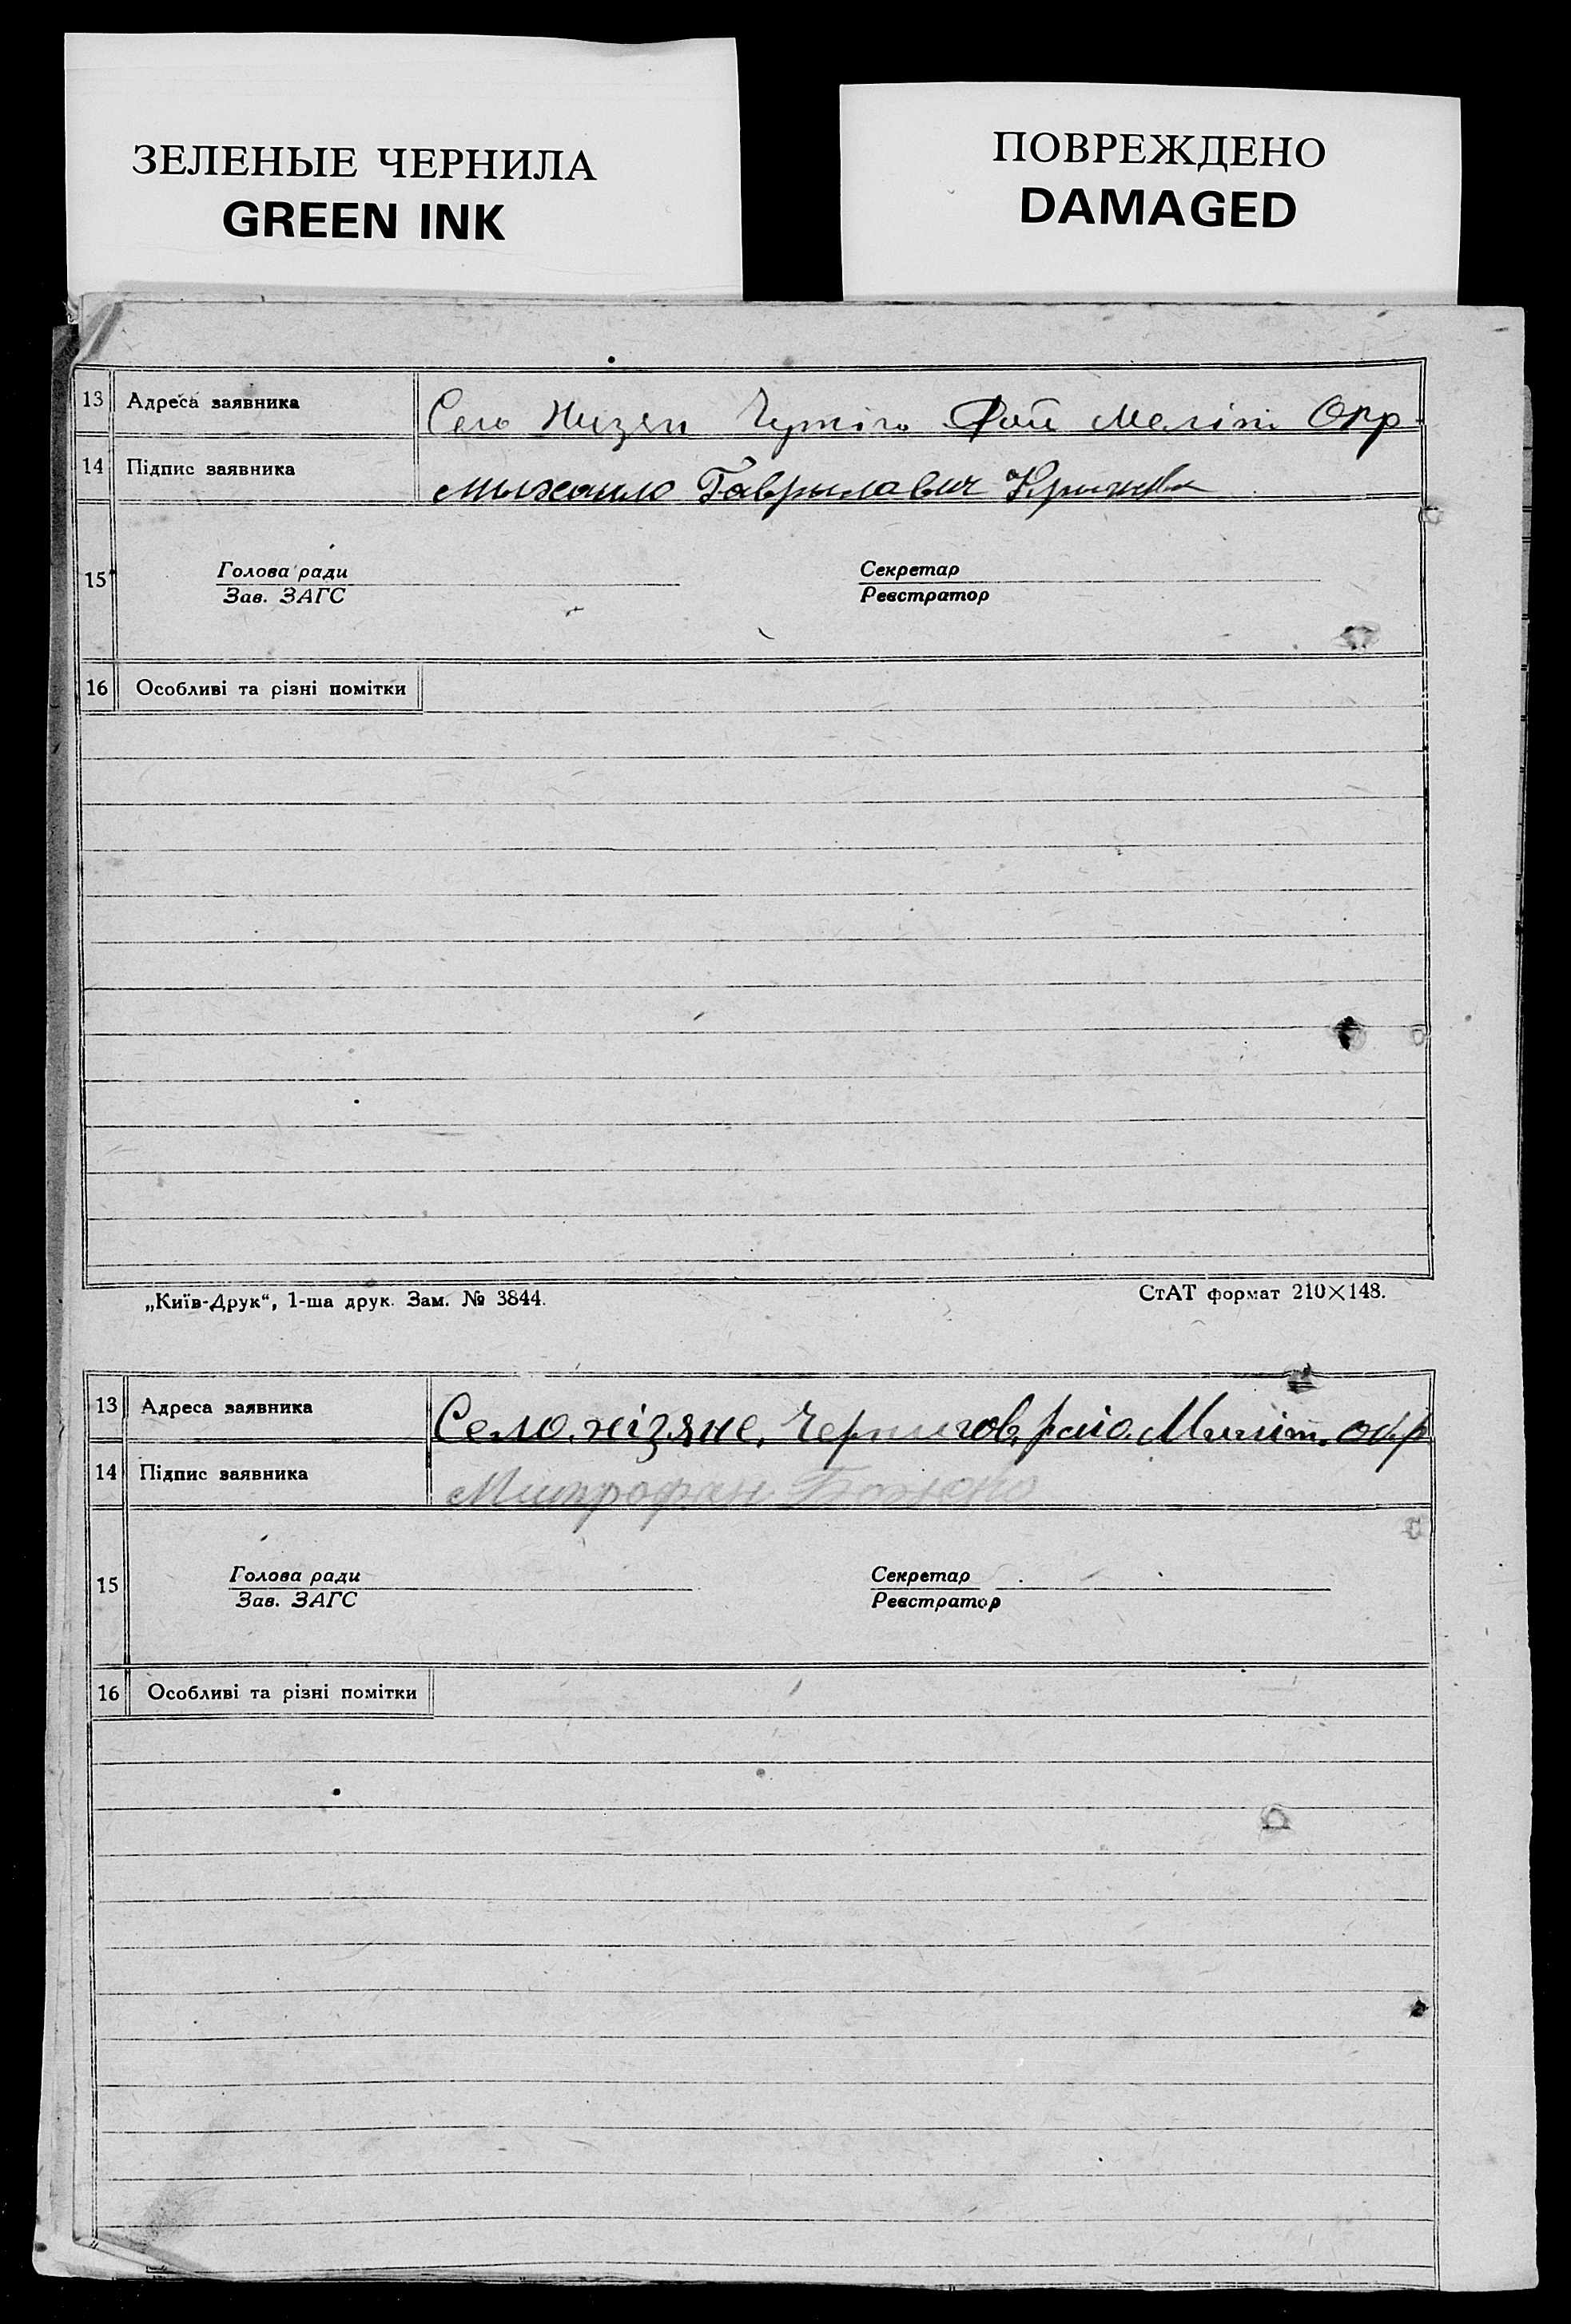 ЗЕЛЕНЫЕ ЧЕРНИЛА
GREEN INK
ПОВРЕЖДЕНО
DAMAGED
13 Адреса заявника Село Низян Мелит Окр
14 Підпис заявника Михаило Гаврылавич
15 Голова ради Секретар
Зав. ЗАГС Реєстратор
16 Особливі та різні помітки
„Київ-Друк“, 1-ша друк. Зам. № 3844. СтАТ формат 210×148.
13 Адреса заявника Село. нізяне. Чернигов. райо. окр
14 Підпис заявника Митрофан
15 Голова ради Секретар
Зав. ЗАГС Реєстратор
16 Особливі та різні помітки